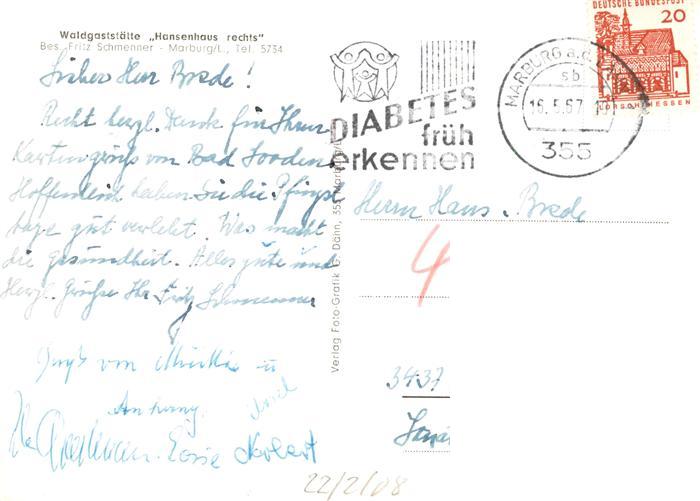 Waldgaststätte „Hansenhaus rechts“
Bes. Fritz Schmenner - Marburg/L., Tel. 5734
Lieber Herr Brede!
Recht herzl. Dank für Ihren
Kartengruß von Bad Sooden
Hoffentlich haben Sie die Pfingst
tage gut verlebt. Was macht
die Gesundheit. Alles gute und
Herzl. Grüße Ihr Fritz Schmenner
von
u
Anhang
Norbert
DIABETES
früh
erkennen
MARBURG a.d.
sb
16.5.67
355
DEUTSCHE BUNDESPOST
20
LORSCH/HESSEN
Verlag Foto-Grafik G. Dähn, 355 Marburg/L.
Herrn Hans Brede
4
3437
22/2/08